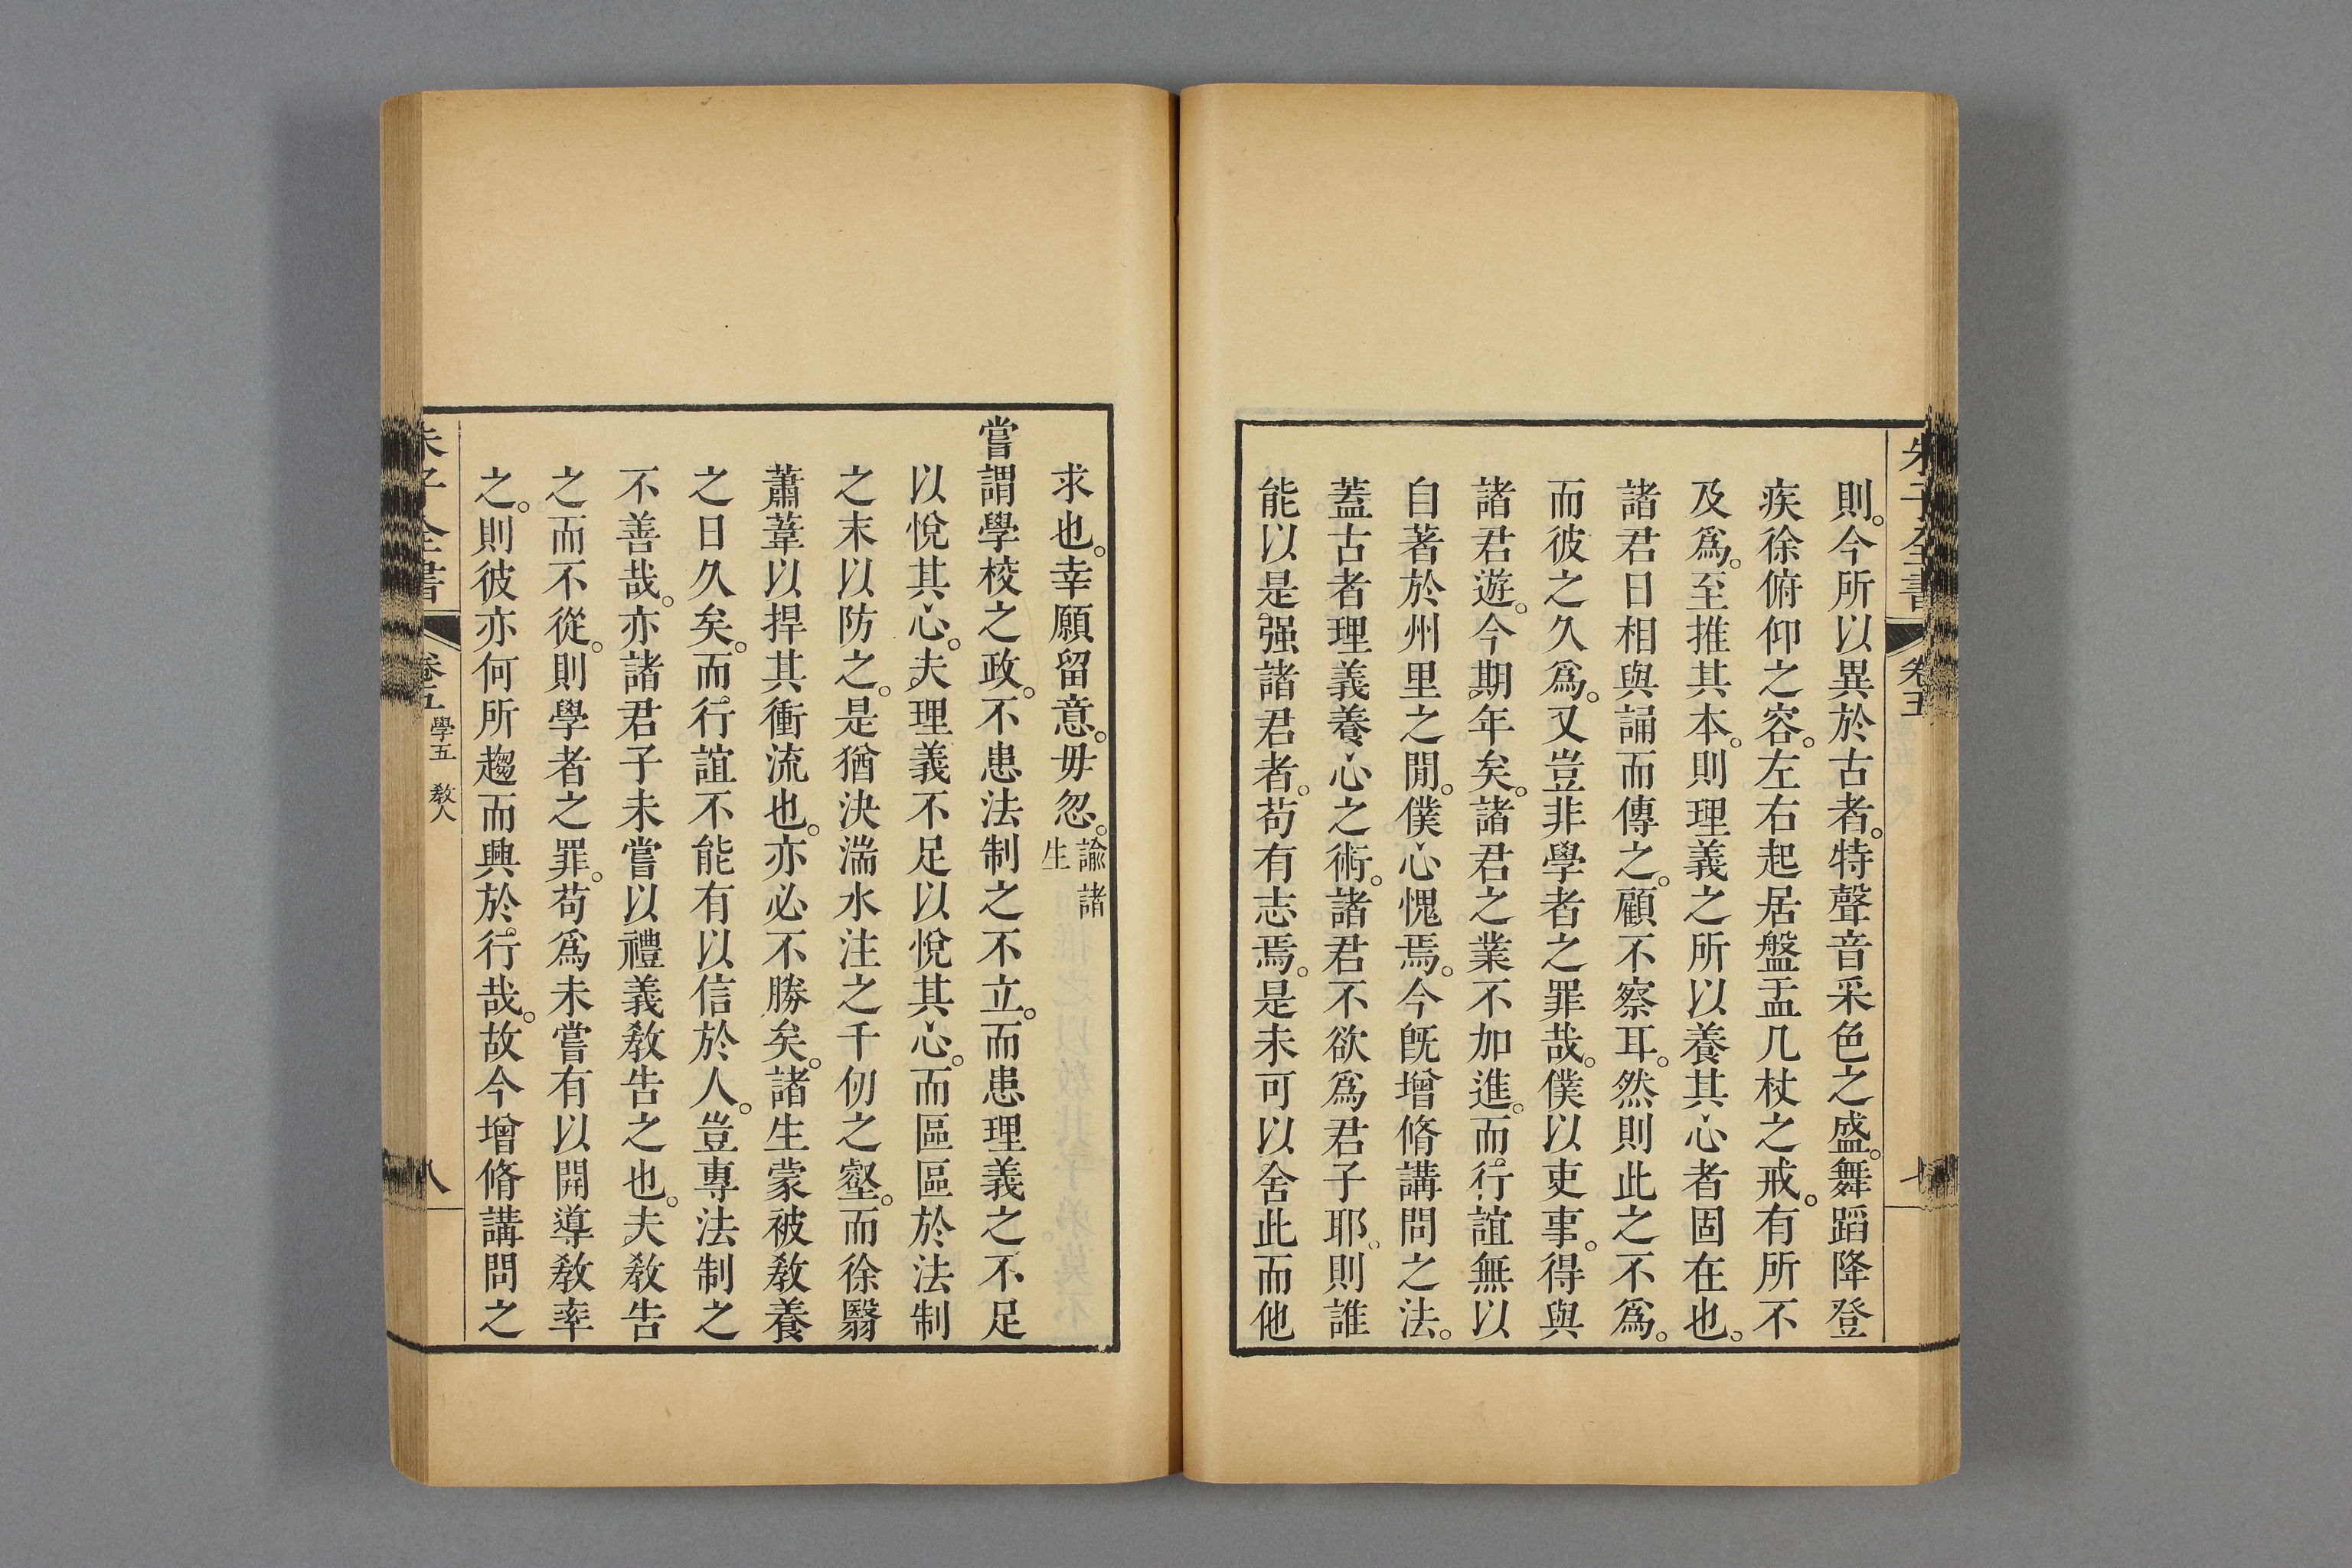 朱子全書 卷五 七
則。今所以異於古者。特聲音采色之盛。舞蹈降登
疾徐俯仰之容。左右起居盤盂几杖之戒。有所不
及爲。至推其本。則理義之所以養其心者固在也。
諸君日相與誦而傳之。顧不察耳。然則此之不爲。
而彼之久爲。又豈非學者之罪哉。僕以吏事。得與
諸君遊。今期年矣。諸君之業不加進。而行誼無以
自著於州里之閒。僕心愧焉。今旣增脩講問之法。
蓋古者理義養心之術。諸君不欲爲君子耶。則誰
能以是强諸君者。苟有志焉。是未可以舍此而他
求也。幸願留意。毋忽。諭諸生
嘗謂學校之政。不患法制之不立。而患理義之不足
以悅其心。夫理義不足以悅其心。而區區於法制
之末以防之。是猶決湍水注之千仞之壑。而徐翳
蕭葦以捍其衝流也。亦必不勝矣。諸生蒙被敎養
之日久矣。而行誼不能有以信於人。豈專法制之
不善哉。亦諸君子未嘗以禮義敎告之也。夫敎告
之而不從。則學者之罪。苟爲未嘗有以開導敎率
之。則彼亦何所趨而興於行哉。故今增脩講問之
朱子全書 卷五 學五 敎人 八